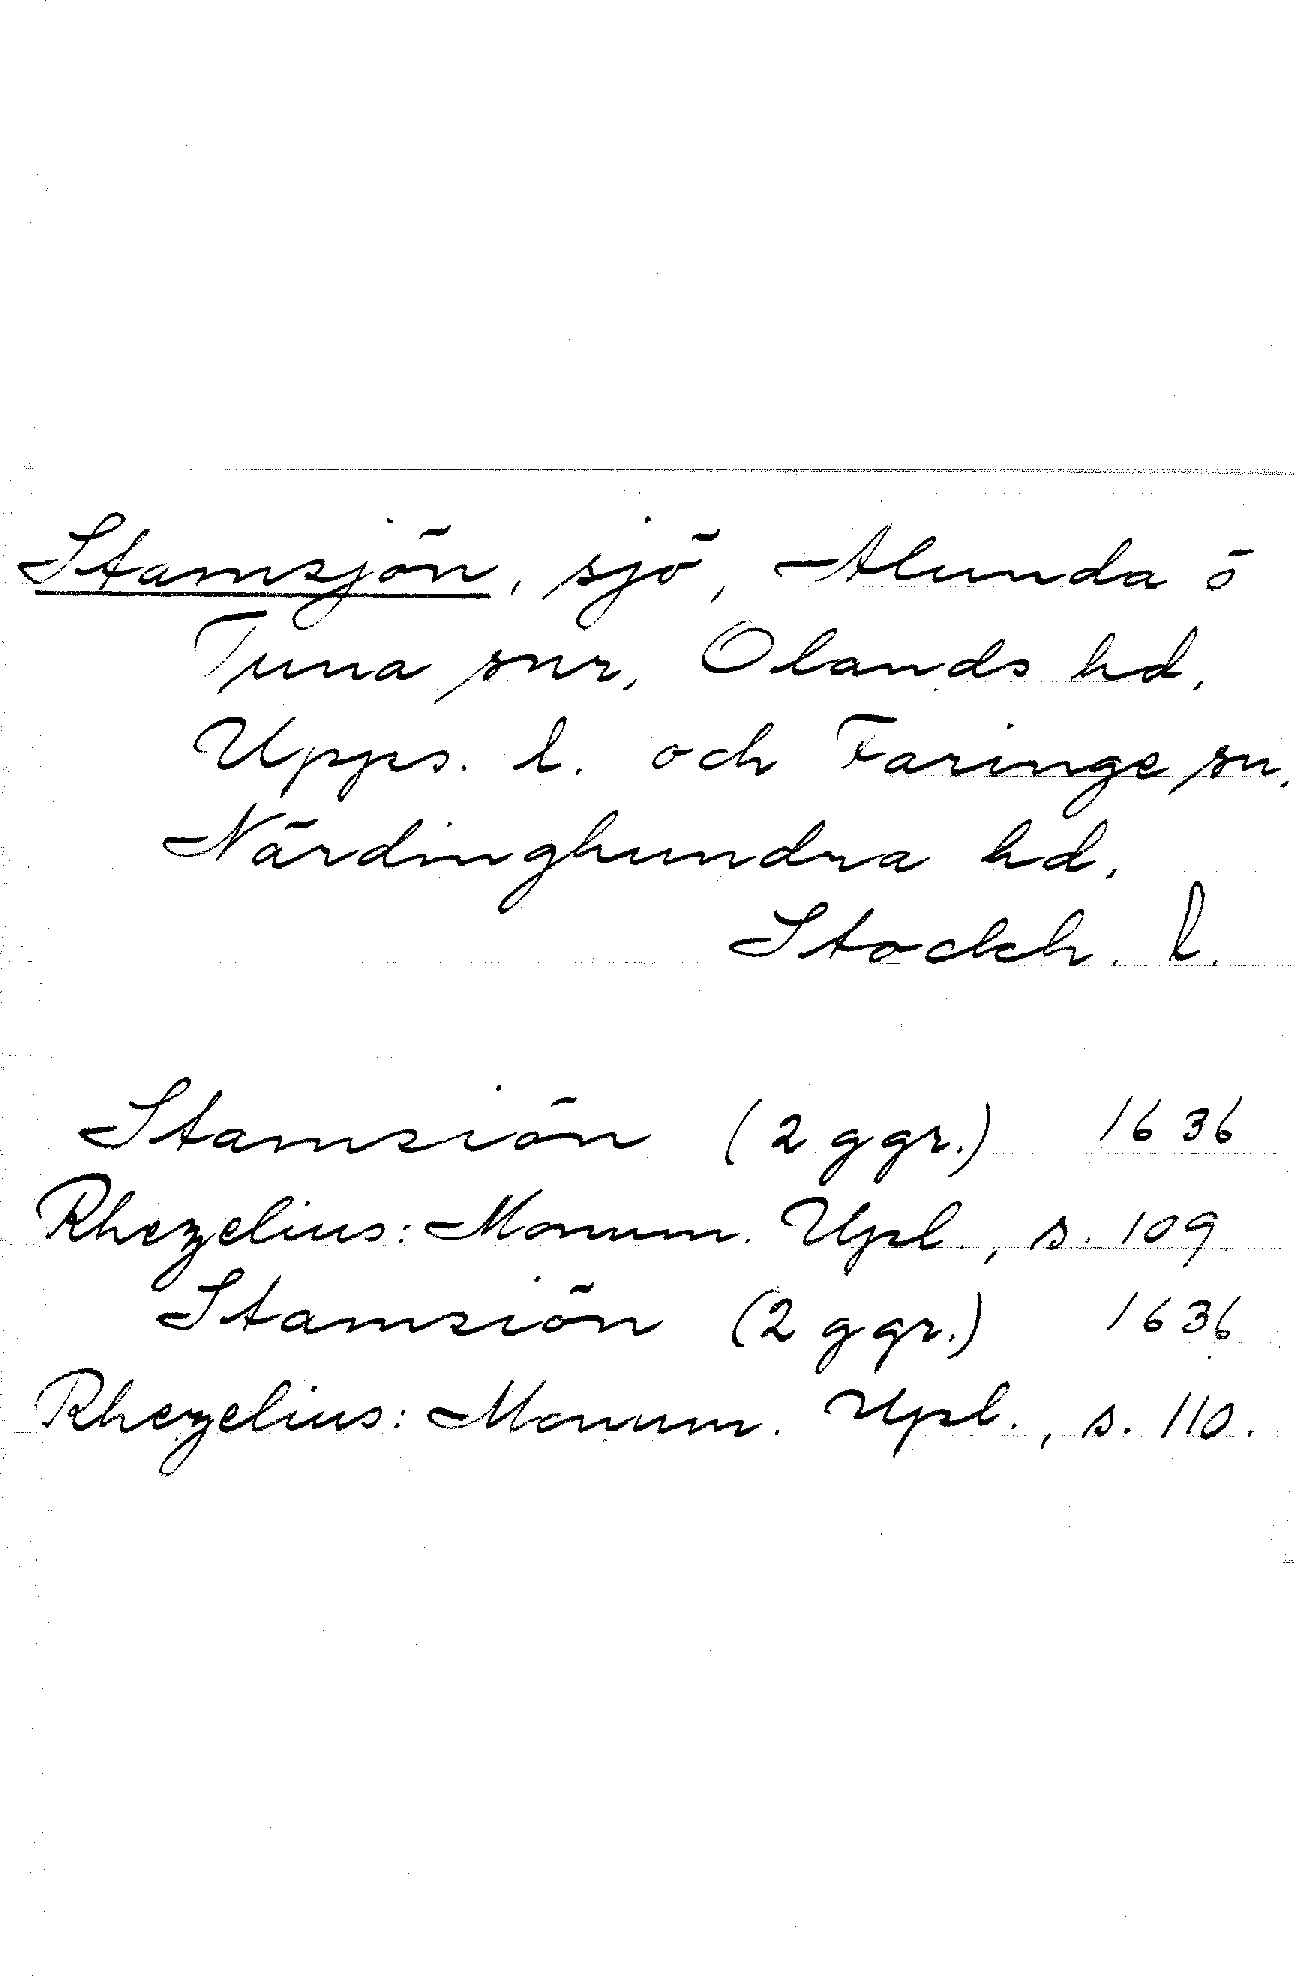 Stamsjön, sjö, Alunda o
Tuna snr, Olands hd,
Upps. l. och Faringe sn,
Närdinghundra hd,
Stockh. l.
Stamsiön (2 ggr.) 1636
Rhezelius: Monum. Upl., s. 109
Stamsiön (2 ggr.) 1636
Rhezelius: Monum. Upl., s. 110.